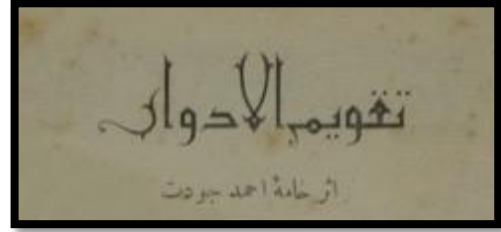 تقويم الادوار
اثر خامهٔ احمد جودت